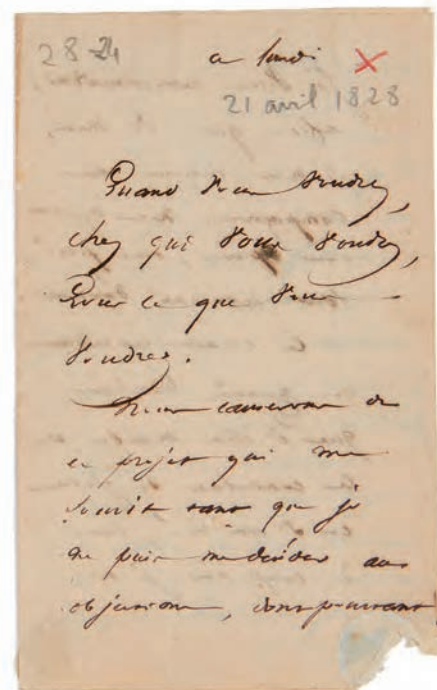 28-24
ce lundi
21 avril 1828
Quand vous voudrez,
chez qui vous voudrez,
Pour ce que vous
voudrez.
Nous causerons de
ce projet qui me
sourit sans que je
ne puis me décider aux
objections,